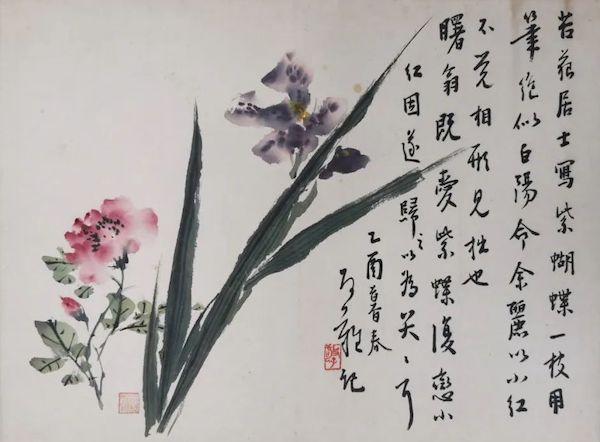 居士寫紫蝴蝶一枝用
筆絶似白陽命余以小紅
不覺相形見拙也
曙翁既愛紫蝶復戀小
紅因遂歸之以為笑々耳
乙酉春
記